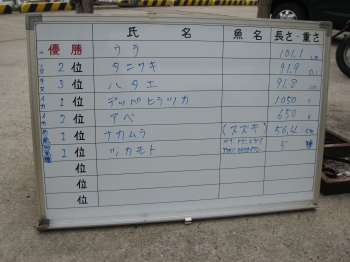 氏 名 魚 名 長さ・重さ
優勝 ウラ 101.1 cm
2 位 タニワキ 91.9 cm
3 位 ハタエ 91.8 cm
1 位 デッパヒラツカ 1050 g
2 位 アベ 650 g
1 位 ナカムラ (スズキ) 56.4 cm
1 位 ツカモト 5 種
位
位